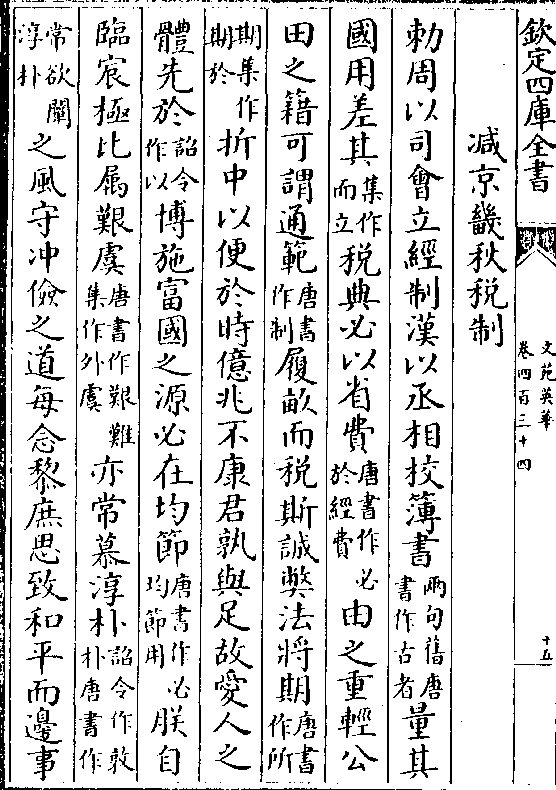 欽定四庫全書
文苑英華
卷四百三十四
十五
減京畿秋税制
勅周以司會立經制漢以丞相校簿書兩句舊唐書作古者量其
國用差其集作而立税典必以省費唐書作必於經費由之重輕公
田之籍可謂通範唐書作制履畝而税斯誠獘法將期唐書作所
期集作期於折中以便於時億兆不康君孰與足故愛人之
體先於詔令作以博施富國之源必在均節唐書作必均節用朕自
臨宸極比属艱虞唐書作艱難集作外虞亦常慕淳朴詔令作敦朴唐書作
常欲闡淳朴之風守冲儉之道每念黎庶思致和平而邊事